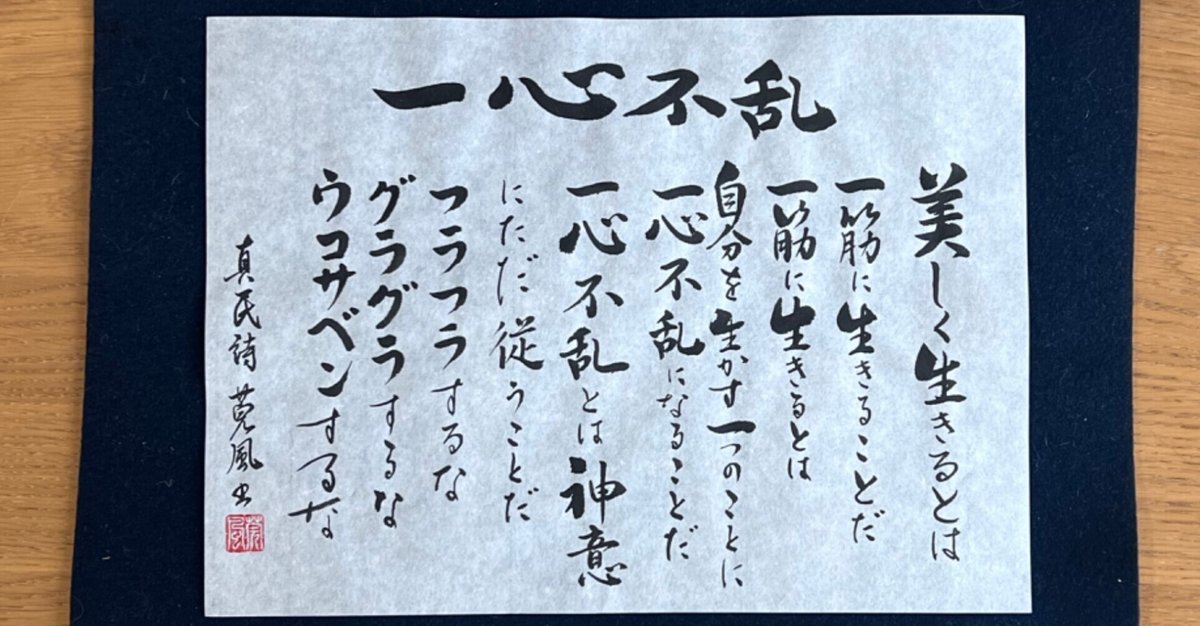 一心不乱
美しく生きるとは
一筋に生きることだ
一筋に生きるとは
自分を生かす一つのことに
一心不乱になることだ
一心不乱とは神意
にただ従うことだ
フラフラするな
グラグラするな
ウコサベンするな
真民詩 莞風書
莞風